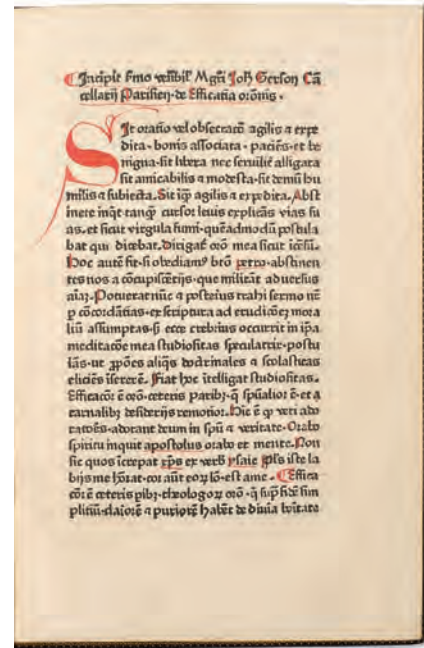 Incipit s̄mo ven̄bil̄ Mgr̄i Joh̄ Gerson Cā
cellarij Parisieñ de Efficatia or̄onis.
Sit oratio vel obsecrac̄o agilis ⁊ expe
dita. bonis associata. pacien̄s. et be
nigna. sit libera nec seruilit̄ alligata
sit amicabilis ⁊ modesta. sit demū hu
milis ⁊ subiecta. Sit igit̄ agilis ⁊ expedita. Abst
inete inq̄t tanq̄ cursor leuis explicās vias su
as. et sicut virgula fumi. quēadmodū postula
bat qui dicebat. Dirigat̄ or̄o mea sicut icēsū.
Hoc autē fit. si obediamꝰ btō petro. abstinen
tes nos a cōcupisc̄ētijs. que militāt aduersus
aīaꝫ. Potuerat nūc ⁊ posterius trahi sermo n̄r̄
p cōcordātias. ex scriptura ad erudic̄oeꝫ mora
liū assumptas. sꝫ ecce crebrius occurrit in ip̄a
meditac̄oe mea studiositas speculatrix. postu
lās. ut ꝓpōes aliq̄s doctrinales ⁊ scolasticas
elicie̅s īsererē. Fiat hoc ītelligat studiositas.
Efficacior̄ ē or̄o. ceteris paribꝫ. q̄ sp̄ualior ē. et a
carnalibꝫ desiderijs remotior. Hic ē ꝙ veri ado
ratores. adorant deum in sp̄u ⁊ veritate. Orabo
spiritu inquit apostolus orabo et mente. Non
sic quos īcrepat xp̄s ex verb̄ ysaie Pl̄s iste la
bijs me hōrat. cor aūt eoꝝ lō. est a me. Effica
cior ē ceteris pibꝫ. theologoꝝ or̄o. q̄ sup̄ fidē sim
pliciū. maiorē ⁊ puriorē habēt de diuīa bōitate